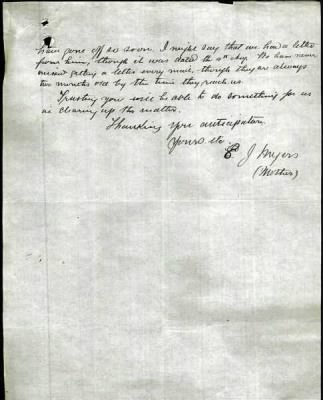 have gone off so soon. I might say that we had a letter
from him, though it was dated the 4th Aug. We have never
missed getting a letter every mail, though they are always
two months old by the time they reach us.
Trusting you will be able to do something for us
in clearing up this matter.
Thanking you
Yours etc
E J Myers
(Mother)